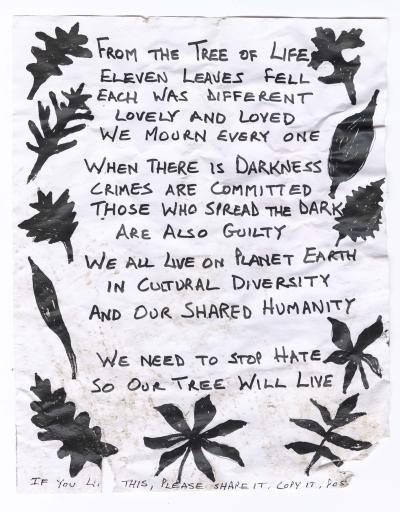 FROM THE TREE OF LIFE
ELEVEN LEAVES FELL
EACH WAS DIFFERENT
LOVELY AND LOVED
WE MOURN EVERY ONE
WHEN THERE IS DARKNESS
CRIMES ARE COMMITTED
THOSE WHO SPREAD THE DARK
ARE ALSO GUILTY
WE ALL LIVE ON PLANET EARTH
IN CULTURAL DIVERSITY
AND OUR SHARED HUMANITY
WE NEED TO STOP HATE
SO OUR TREE WILL LIVE
IF YOU LI THIS, PLEASE SHARE IT, COPY IT, POS